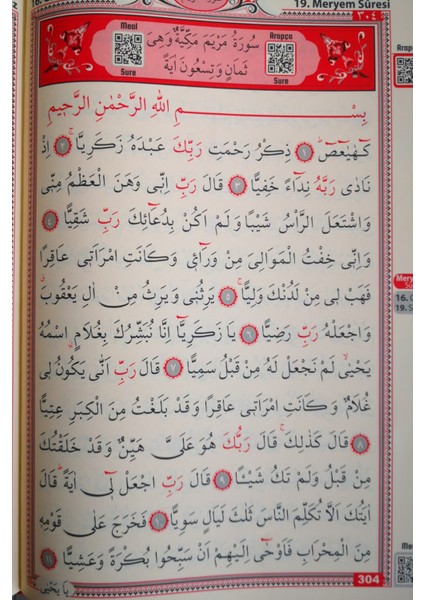 19. Meryem Sûresi
٣٠٤
Meal
Arapça
سُورَةُ مَرْيَمَ مَكِّيَّةٌ وَهِيَ
ثَمَانٍ وَتِسْعُونَ اٰيَةً
Sure
Sure
بِسْمِ اللّٰهِ الرَّحْمٰنِ الرَّحِيمِ
كٓهٰيٰعٓصٓ ۚ ﴿١﴾ ذِكْرُ رَحْمَتِ رَبِّكَ عَبْدَهُ زَكَرِيَّا ۚ ﴿٢﴾ اِذْ
نَادٰى رَبَّهُ نِدَٓاءً خَفِيًّا ﴿٣﴾ قَالَ رَبِّ اِنّٖى وَهَنَ الْعَظْمُ مِنّٖى
وَاشْتَعَلَ الرَّاْسُ شَيْبًا وَلَمْ اَكُنْ بِدُعَٓائِكَ رَبِّ شَقِيًّا ﴿٤﴾
وَاِنّٖى خِفْتُ الْمَوَالِىَ مِنْ وَرَٓائٖى وَكَانَتِ امْرَاَتٖى عَاقِرًا
فَهَبْ لٖى مِنْ لَدُنْكَ وَلِيًّا ۙ ﴿٥﴾ يَرِثُنٖى وَيَرِثُ مِنْ اٰلِ يَعْقُوبَ
وَاجْعَلْهُ رَبِّ رَضِيًّا ﴿٦﴾ يَا زَكَرِيَّٓا اِنَّا نُبَشِّرُكَ بِغُلَامٍ اسْمُهُ
يَحْيٰى لَمْ نَجْعَلْ لَهُ مِنْ قَبْلُ سَمِيًّا ﴿٧﴾ قَالَ رَبِّ اَنّٰى يَكُونُ لٖى
غُلَامٌ وَكَانَتِ امْرَاَتٖى عَاقِرًا وَقَدْ بَلَغْتُ مِنَ الْكِبَرِ عِتِيًّا
﴿٨﴾ قَالَ كَذٰلِكَ ۚ قَالَ رَبُّكَ هُوَ عَلَىَّ هَيِّنٌ وَقَدْ خَلَقْتُكَ
مِنْ قَبْلُ وَلَمْ تَكُ شَيْـًٔا ﴿٩﴾ قَالَ رَبِّ اجْعَلْ لٖٓى اٰيَةً قَالَ
اٰيَتُكَ اَلَّا تُكَلِّمَ النَّاسَ ثَلٰثَ لَيَالٍ سَوِيًّا ﴿١٠﴾ فَخَرَجَ عَلٰى قَوْمِهٖ
مِنَ الْمِحْرَابِ فَاَوْحٰٓى اِلَيْهِمْ اَنْ سَبِّحُوا بُكْرَةً وَعَشِيًّا ﴿١١﴾
304
يَا يَحْيٰى